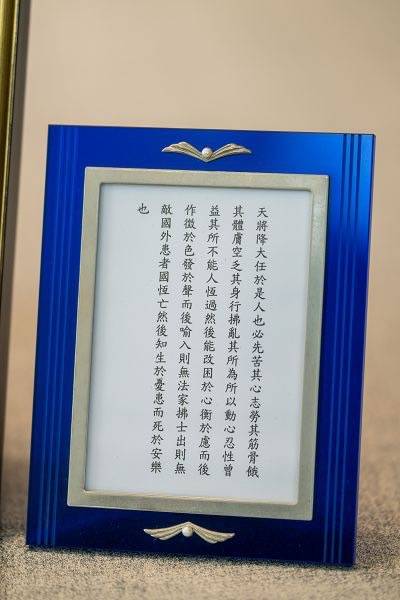 天將降大任於是人也必先苦其心志勞其筋骨餓
其體膚空乏其身行拂亂其所為所以動心忍性曾
益其所不能人恆過然後能改困於心衡於慮而後
作徵於色發於聲而後喻入則無法家拂士出則無
敵國外患者國恆亡然後知生於憂患而死於安樂
也